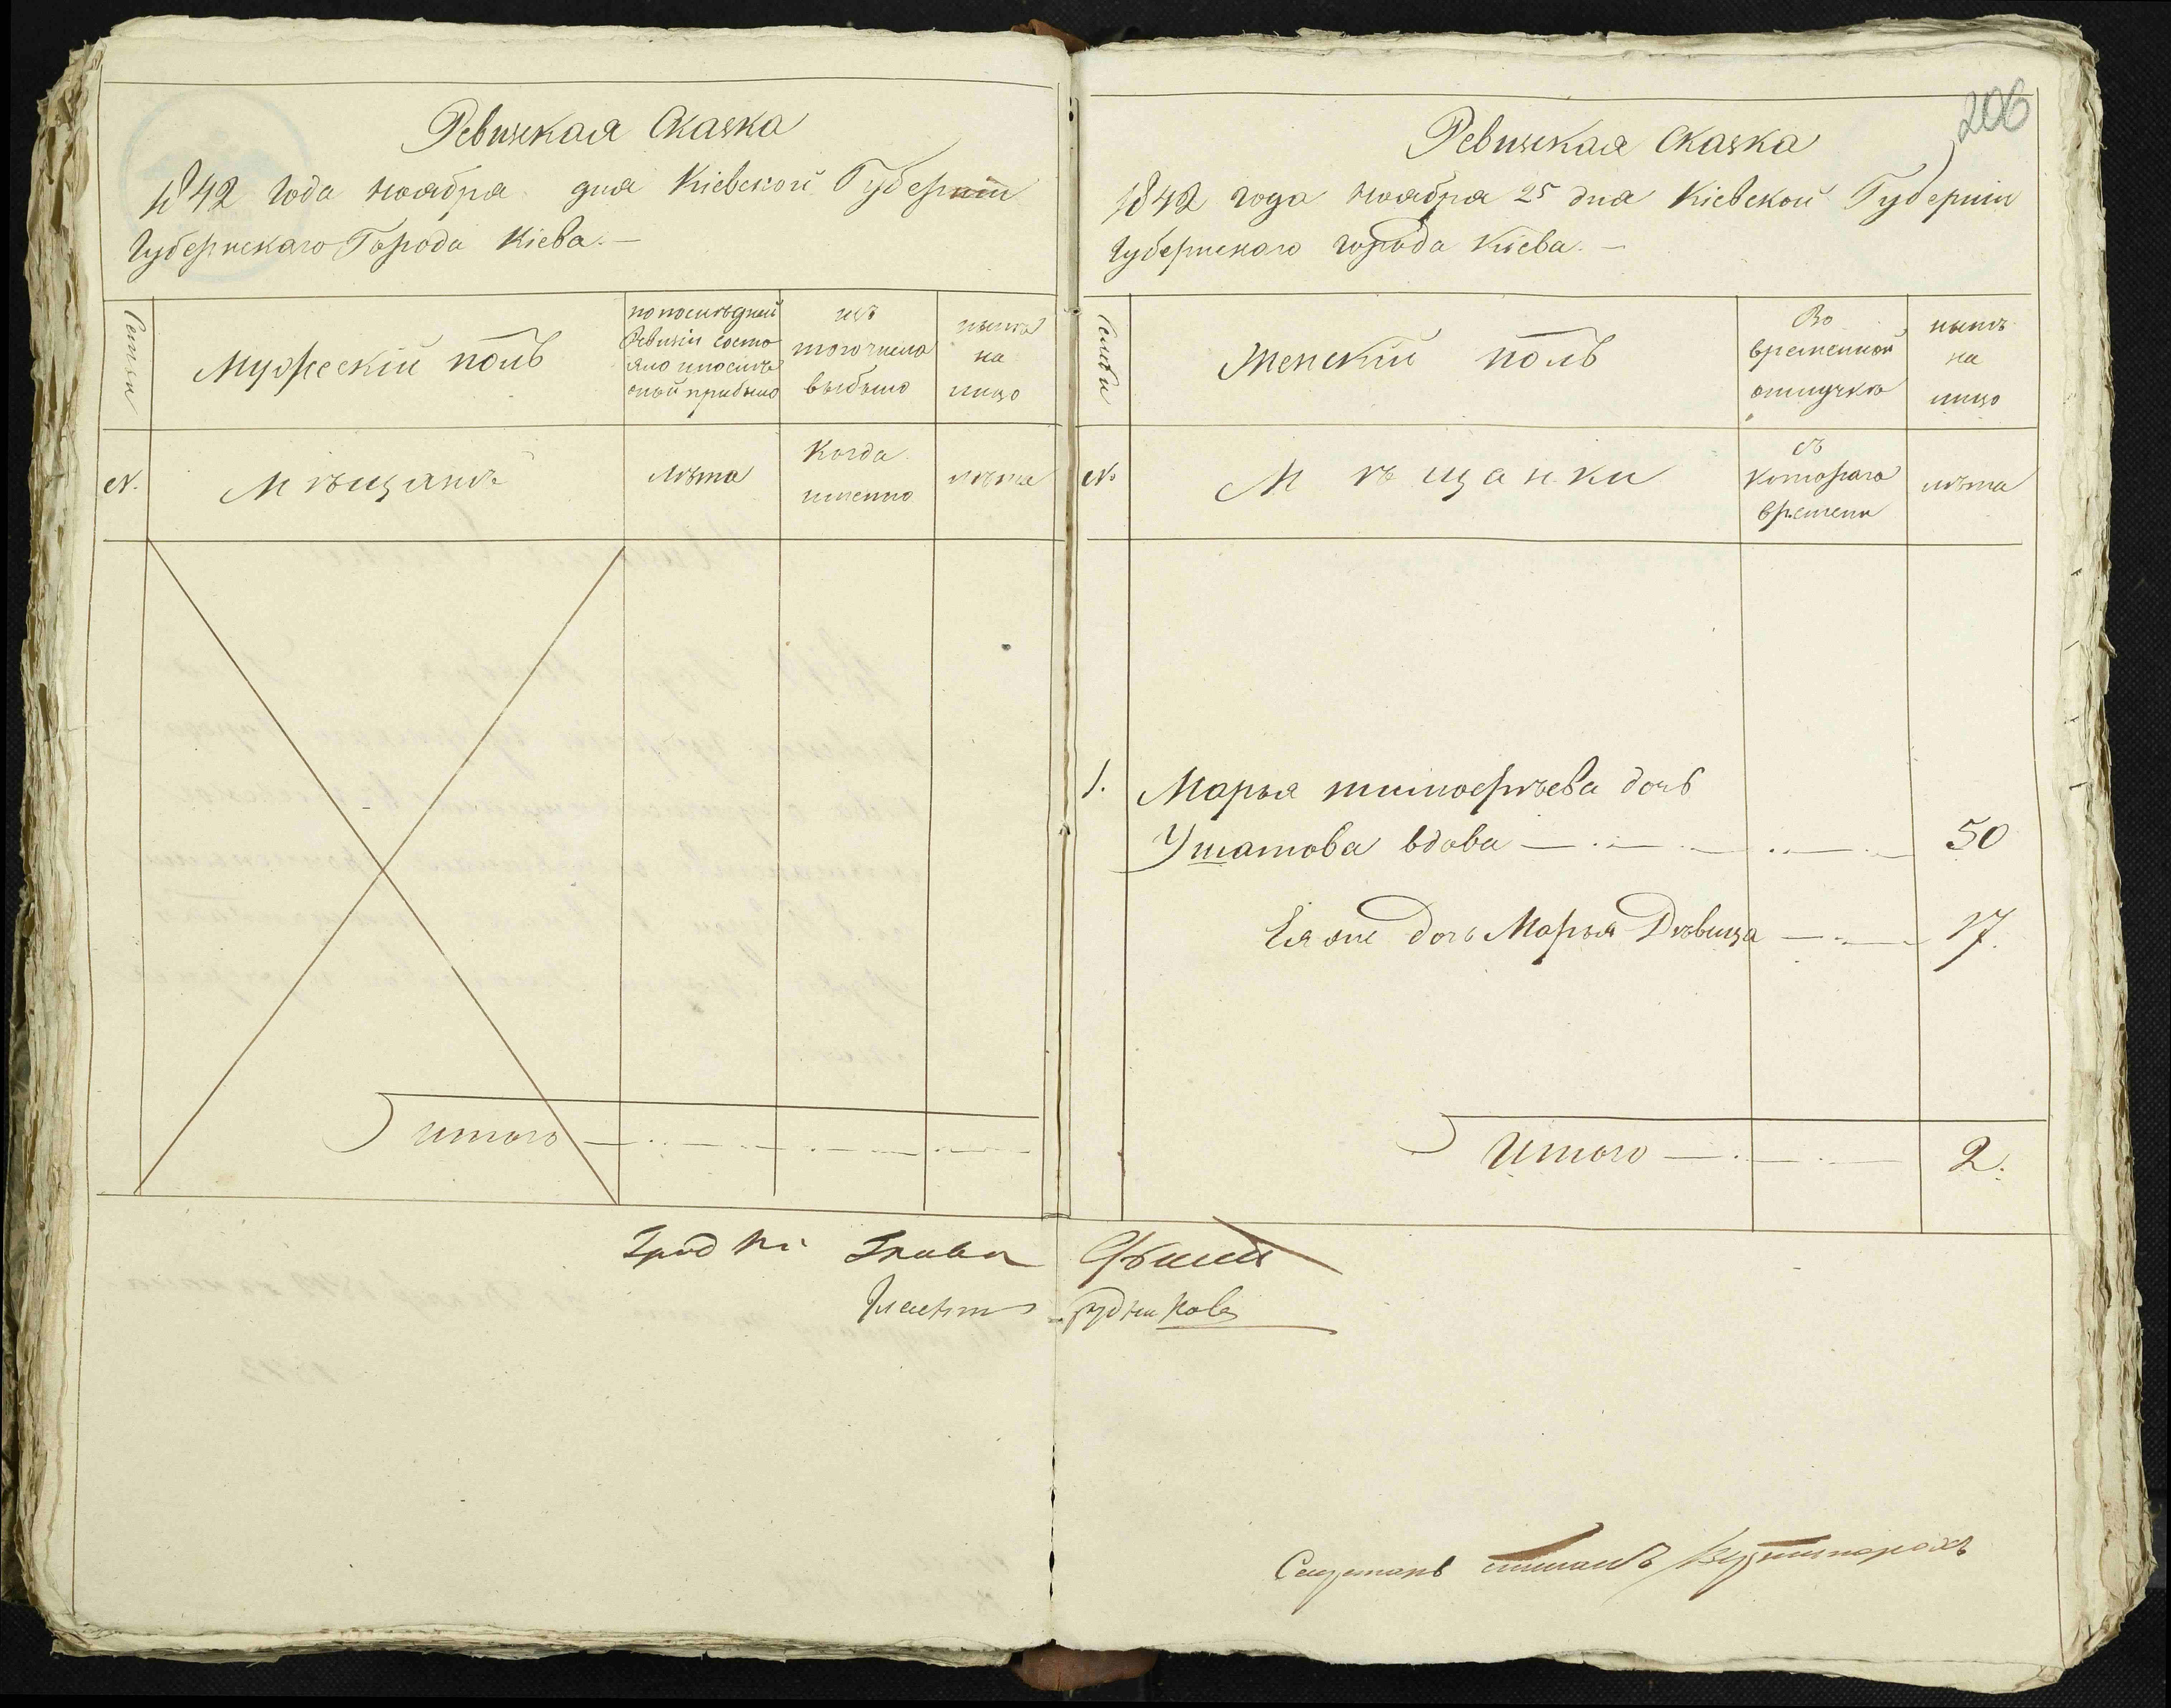 Ревизская Сказка
1842 года ноября дня Кіевской Губерніи
Губернскаго Города Кіева. —
Семьи
Мужескій полъ
по последней
Ревизіи состо
яло и после
оной прибыло
изъ
того числа
выбыло
нынѣ
на
лицо
№.
Мѣщанъ
лѣта
когда
именно
лѣта
итого
206
Ревизская Сказка
1842 года ноября 25 дня Кіевской Губерніи
Губернскаго города Кіева. —
Семьи
Женскій полъ
Во
временной
отлучкѣ
нынѣ
на
лицо
№
Мѣщанки
съ
котораго
времени
лѣта
1. Марья тимофѣева дочь
Ушатова вдова 50
Ея же дочь Марья Дѣвица 17.
Итого 2.
Град Кі Глава